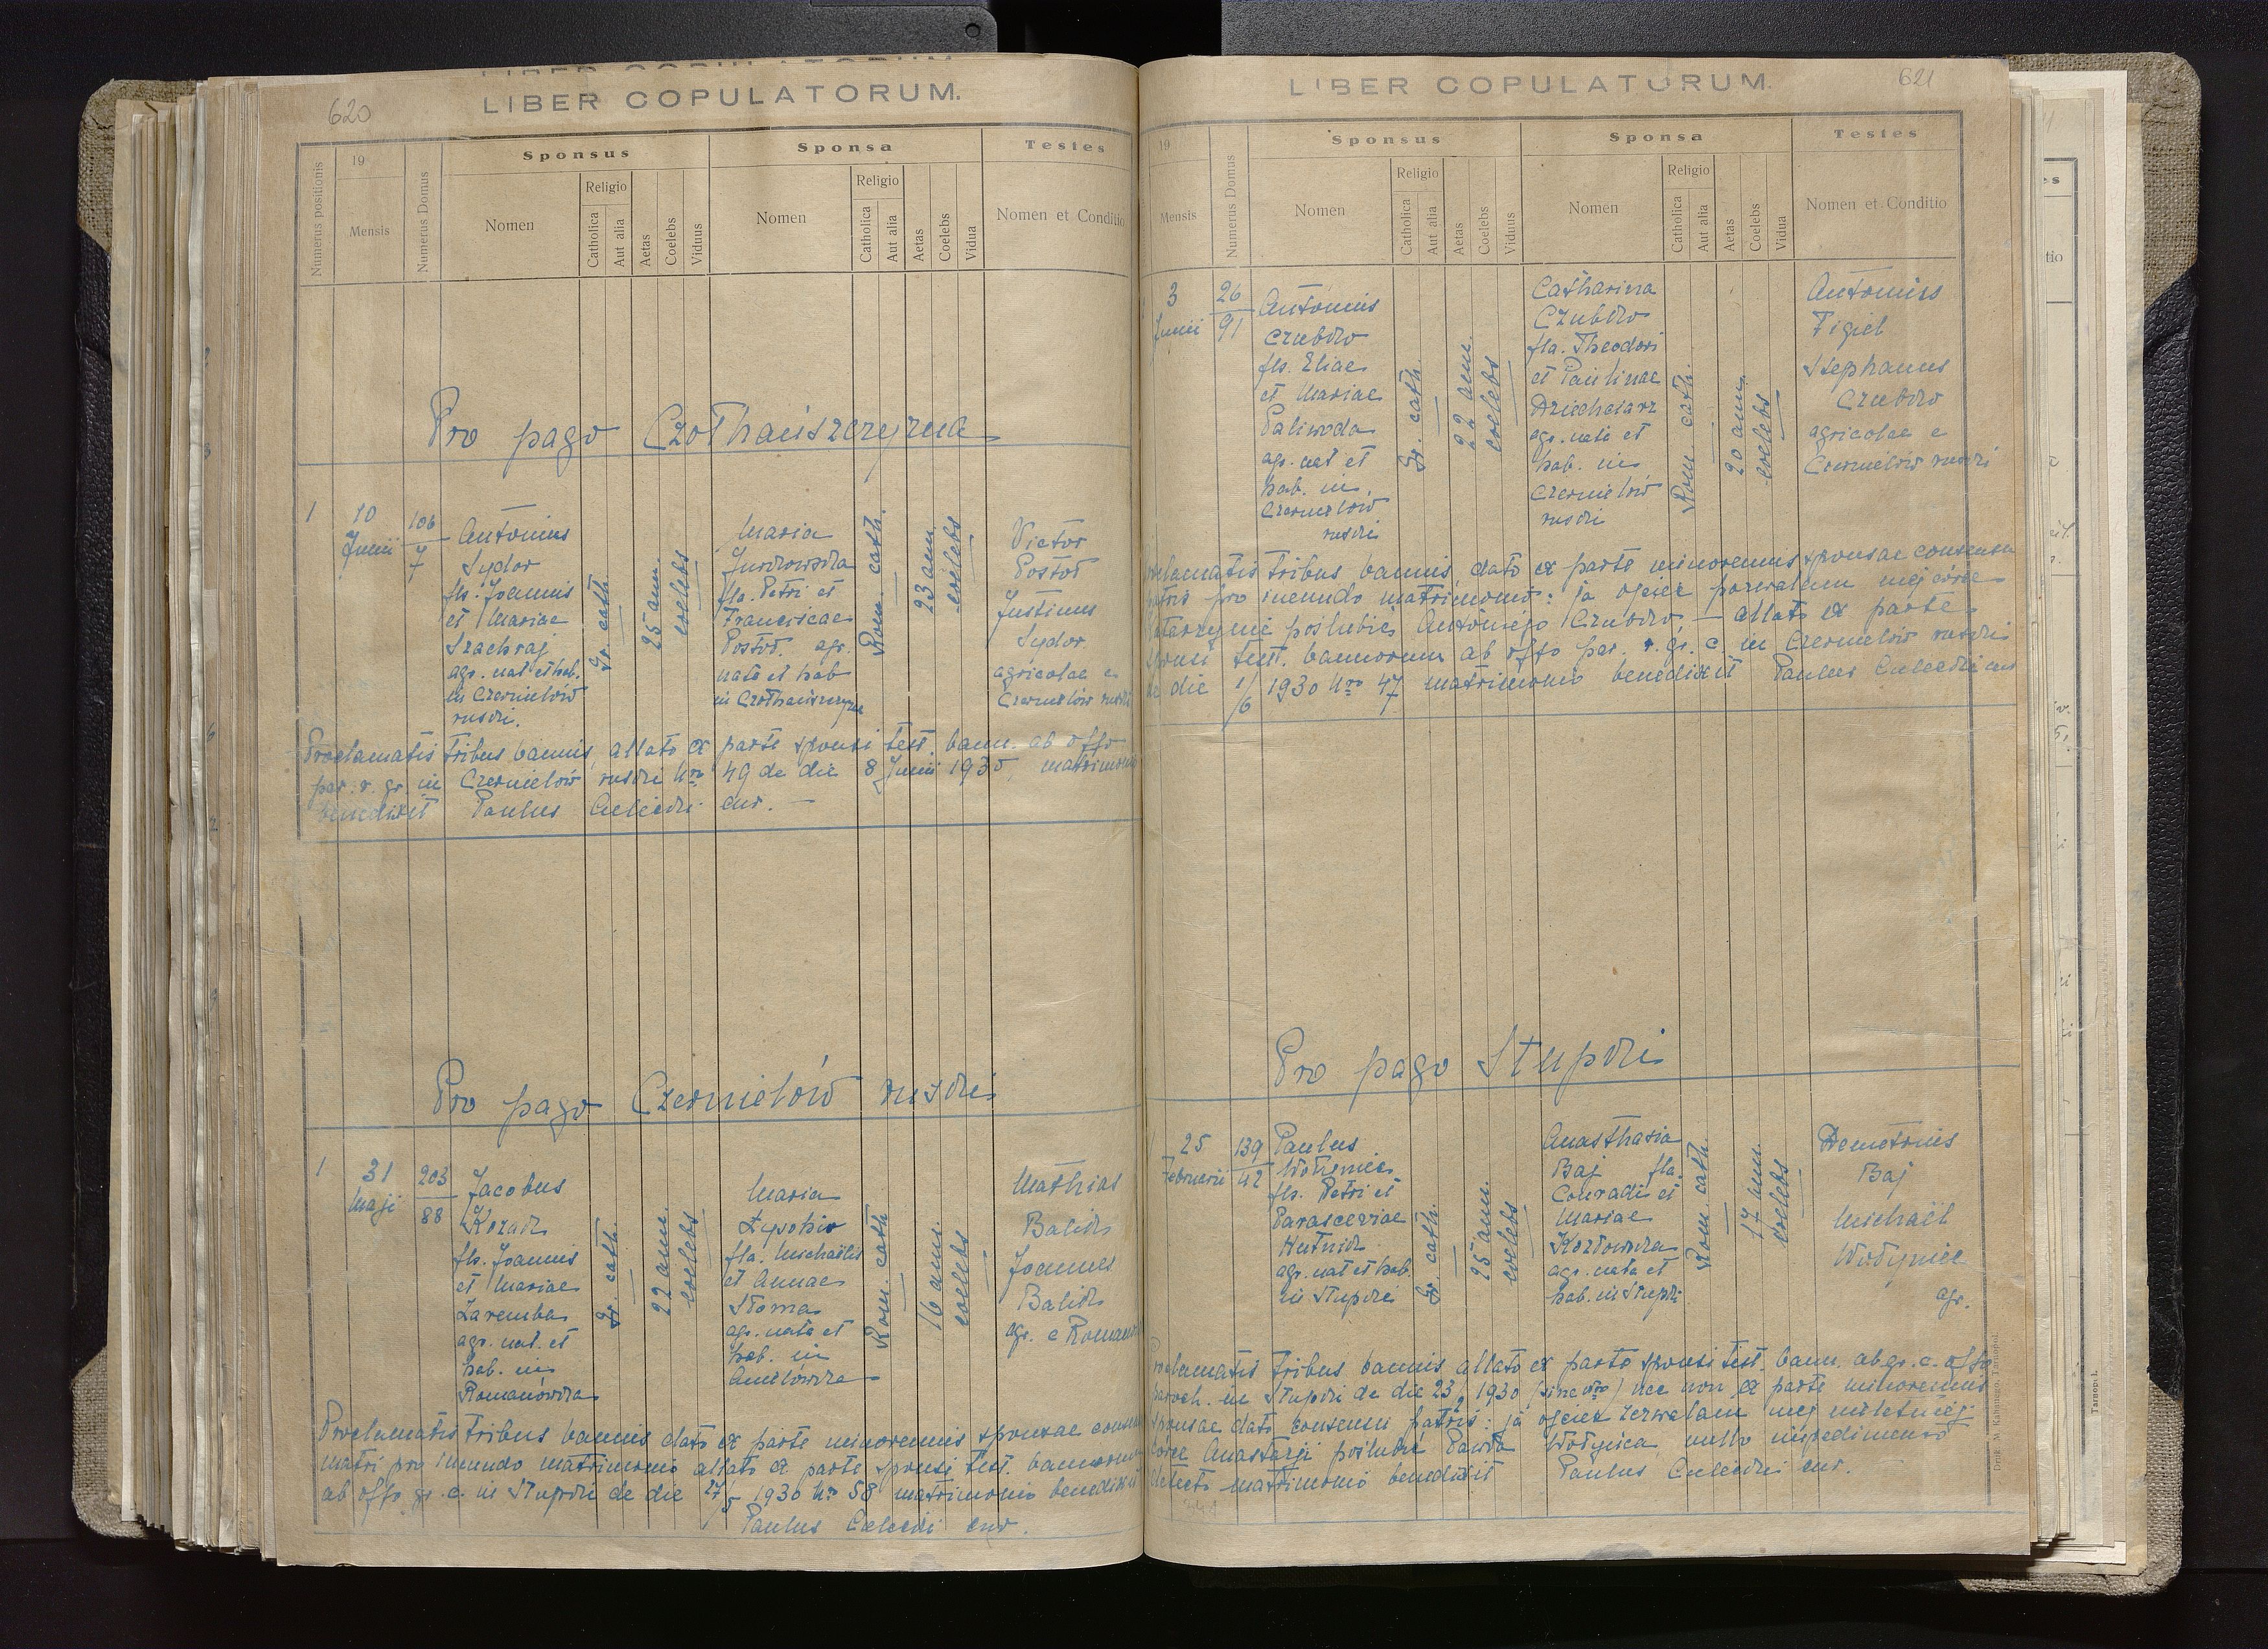 620
LIBER COPULATORUM.
Numerus positionis
19
Mensis
Numerus Domus
Sponsus
Nomen
Religio
Catholica
Aut alia
Aetas
Coelebs
Viduus
Sponsa
Nomen
Religio
Catholica
Aut alia
Aetas
Coelebs
Vidua
Testes
Nomen et Conditio
Pro pago
1
10
Junii
106
7
Antonius
Sydor
fls. Joannis
et Mariae
Szachraj
agr. nat et hab.
in Czernielów
ruski.
Gr. cath
25 ann.
coelebs
Maria
fla. Petri et
Franciscae
Postoł. agr.
nata et hab
in
Rom. cath.
23 ann.
coelebs
Victor
Postoł
Justinus
Sydor
agricolae e
Czernielów ruski
Proclamatis tribus bannis, allato ex parte sponsi test. bann. ab offo
par. r. gr. in Czernielów ruski Nro 49 de die 8 Junii 1930, matrimonio
benedixit Paulus cur. —
Pro pago Czernielów ruski
1
31
Maji
203
88
Jacobus
Kozak
fls. Joannis
et Mariae
Zaremba
agr. nat. et
hab. in
Romanówka
Gr. cath.
22 ann.
coelebs
Maria
fla. Michaëlis
et Annae
Słoma
agr. nata et
hab. in
Rom. cath
16 ann.
coelebs
Mathias
Balich
Joannes
Balich
agr. e
Proclamatis tribus bannis dato ex parte minorennis sponsae
matri pro ineundo matrimonio allato ex parte sponsi test.
ab offo gr. c. in Stupki de die 27/5 1930 Nr 58 matrimonio benedixit
Paulus cur.
621
LIBER COPULATORUM.
19
Mensis
Numerus Domus
Sponsus
Nomen
Religio
Catholica
Aut alia
Aetas
Coelebs
Viduus
Sponsa
Nomen
Religio
Catholica
Aut alia
Aetas
Coelebs
Vidua
Testes
Nomen et Conditio
3
Junii
26
91
Antonius
Czubko
fls. Eliae
et Mariae
Paliwoda
agr. nat et
hab. in
Czernielów
ruski
Gr. cath.
22 ann.
coelebs
Catharina
Czubko
fla. Theodori
et Paulinae
agr. nata et
hab. in
Czernielów
ruski
Rom. cath.
20 ann.
coelebs
Antonius
Figiel
Stephanus
Czubko
agricolae e
Czernielów ruski
tribus bannis, dato ex parte minorennis sponsae consensu
patris pro ineundo matrimonio: ja ojciec pozwalam mej córce
Katarzynie poślubić Antoniego Czubko, — allato ex parte
sponsi test. bannorum ab offo par. r. gr. c. in Czernielów ruski
de die 1/6 1930 Nro 47 matrimonio benedixit Paulus
Pro pago Stupki
25
Februarii
139
42
Paulus
fls. Petri et
Parasceviae
agr. nat et hab.
in Stupki
Gr. cath.
25 ann.
coelebs
Anasthasia
Baj fla.
Conradi et
Mariae
agr. nata et
hab. in Stupki
Rom. cath.
17 ann.
coelebs
Demetrius
Baj
Michaël
Wołyniec
agr.
Proclamatis tribus bannis, allato ex parte sponsi test. bann. ab gr. c. offo
paroch. in Stupki de die 23/2 1930 (sine Nro) nec non ex parte minorennis
sponsae dato consensu patris: ja ojciec zezwalam mej nieletniej
córce Anastazji poślubić Pawła Wołyńca, nullo impedimento
detecto matrimonio benedixit Paulus cur.
Tarnopol.